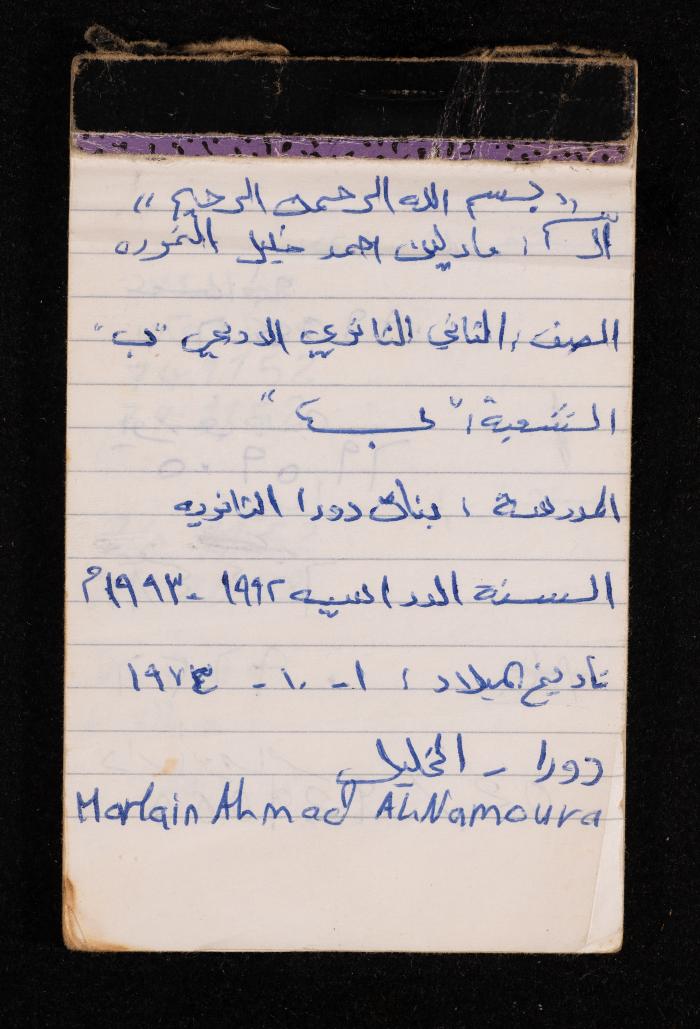 « بسم الله الرحمن الرحيم »
الاسم : مارلين احمد خليل النموره
الصف : الثاني الثانوي الادبي "ب"
الشعبة : " ب "
المدرسة : بنات دورا الثانويه
السنة الدراسيه ١٩٩٢ - ١٩٩٣ م
تاريخ الميلاد : ١ - ١٠ - ١٩٧٤
دورا - الخليل
Marlain Ahmad AL.Namoura